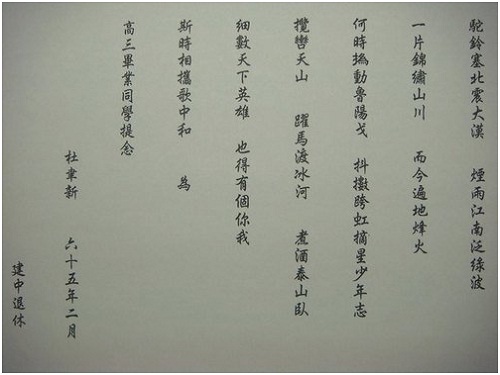 駝鈴塞北震大漠　煙雨江南泛綠波
一片錦繡山川　而今遍地烽火
何時撝動魯陽戈　抖擻跨虹摘星少年志
攬轡天山　躍馬渡冰河　煮酒泰山臥
細數天下英雄　也得有個你我
斯時相攜歌中和　為
高三畢業同學提念
杜聿新　六十五年二月
建中退休